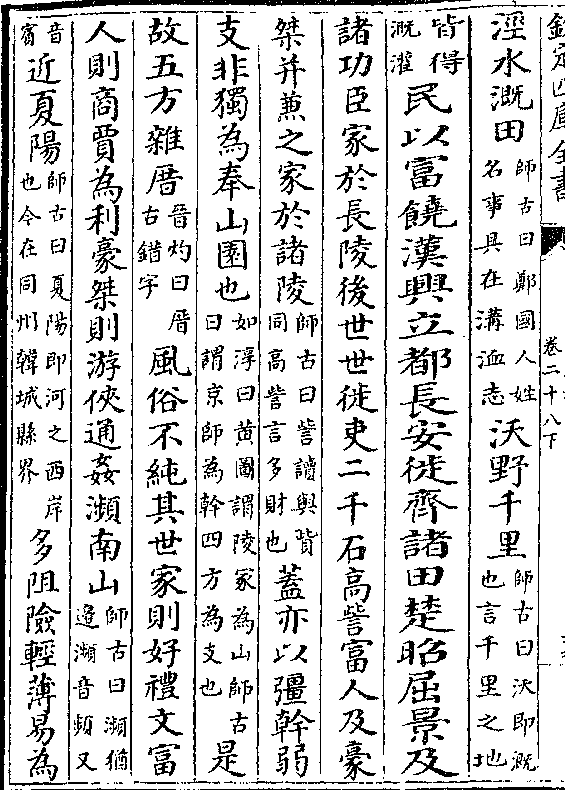 欽定四庫全書
卷二十八下
涇水溉田師古曰鄭國人姓名事具在溝洫志沃野千里師古曰沃即溉也言千里之地
皆得溉灌民以富饒漢興立都長安徙齊諸田楚昭屈景及
諸功臣家於長陵後世世徙吏二千石高訾富人及豪
桀并兼之家於諸陵師古曰訾讀與貲同高訾言多財也蓋亦以彊幹弱
支非獨為奉山園也如淳曰黄圖謂陵冢為山師古曰謂京師為幹四方為支也是
故五方雜厝晉灼曰厝古錯字風俗不純其世家則好禮文富
人則商賈為利豪桀則游俠通姦瀕南山師古曰瀕猶邊瀕音頻又
音賓近夏陽師古曰夏陽即河之西岸也今在同州韓城縣界多阻險輕薄易為